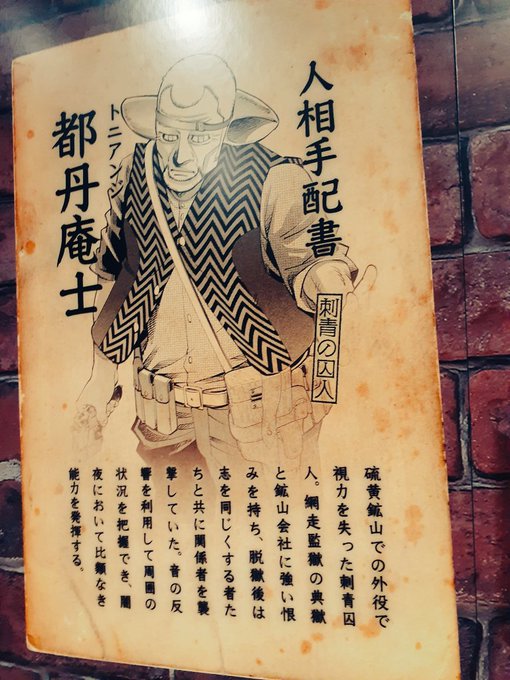 人相手配書
刺青の囚人
トニアンジ
都丹庵士
硫黄鉱山での外役で
視力を失った刺青囚
人。網走監獄の典獄
と鉱山会社に強い恨
みを持ち、脱獄後は
志を同じくする者た
ちと共に関係者を襲
撃していた。音の反
響を利用して周囲の
状況を把握でき、闇
夜において比類なき
能力を発揮する。